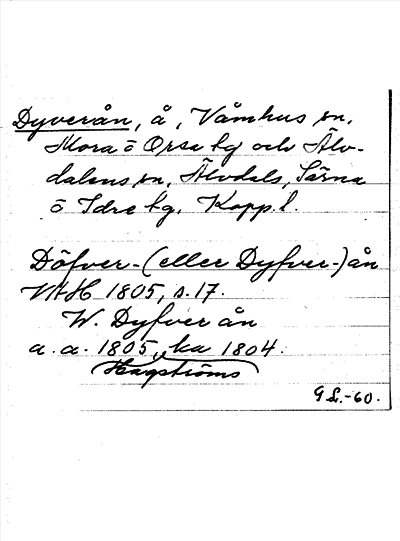 Dyverån, å, Våmhus sn,
Mora o Orsa tg och Älv-
dalens sn, Älvdals, Särna
o Idre tg. Kopp. l.
Döfver- (eller Dyfver-) ån
VAH 1805, s. 17.
W. Dyfver ån
a. a. 1805, ka 1804.
Hagströms
G L. -60.